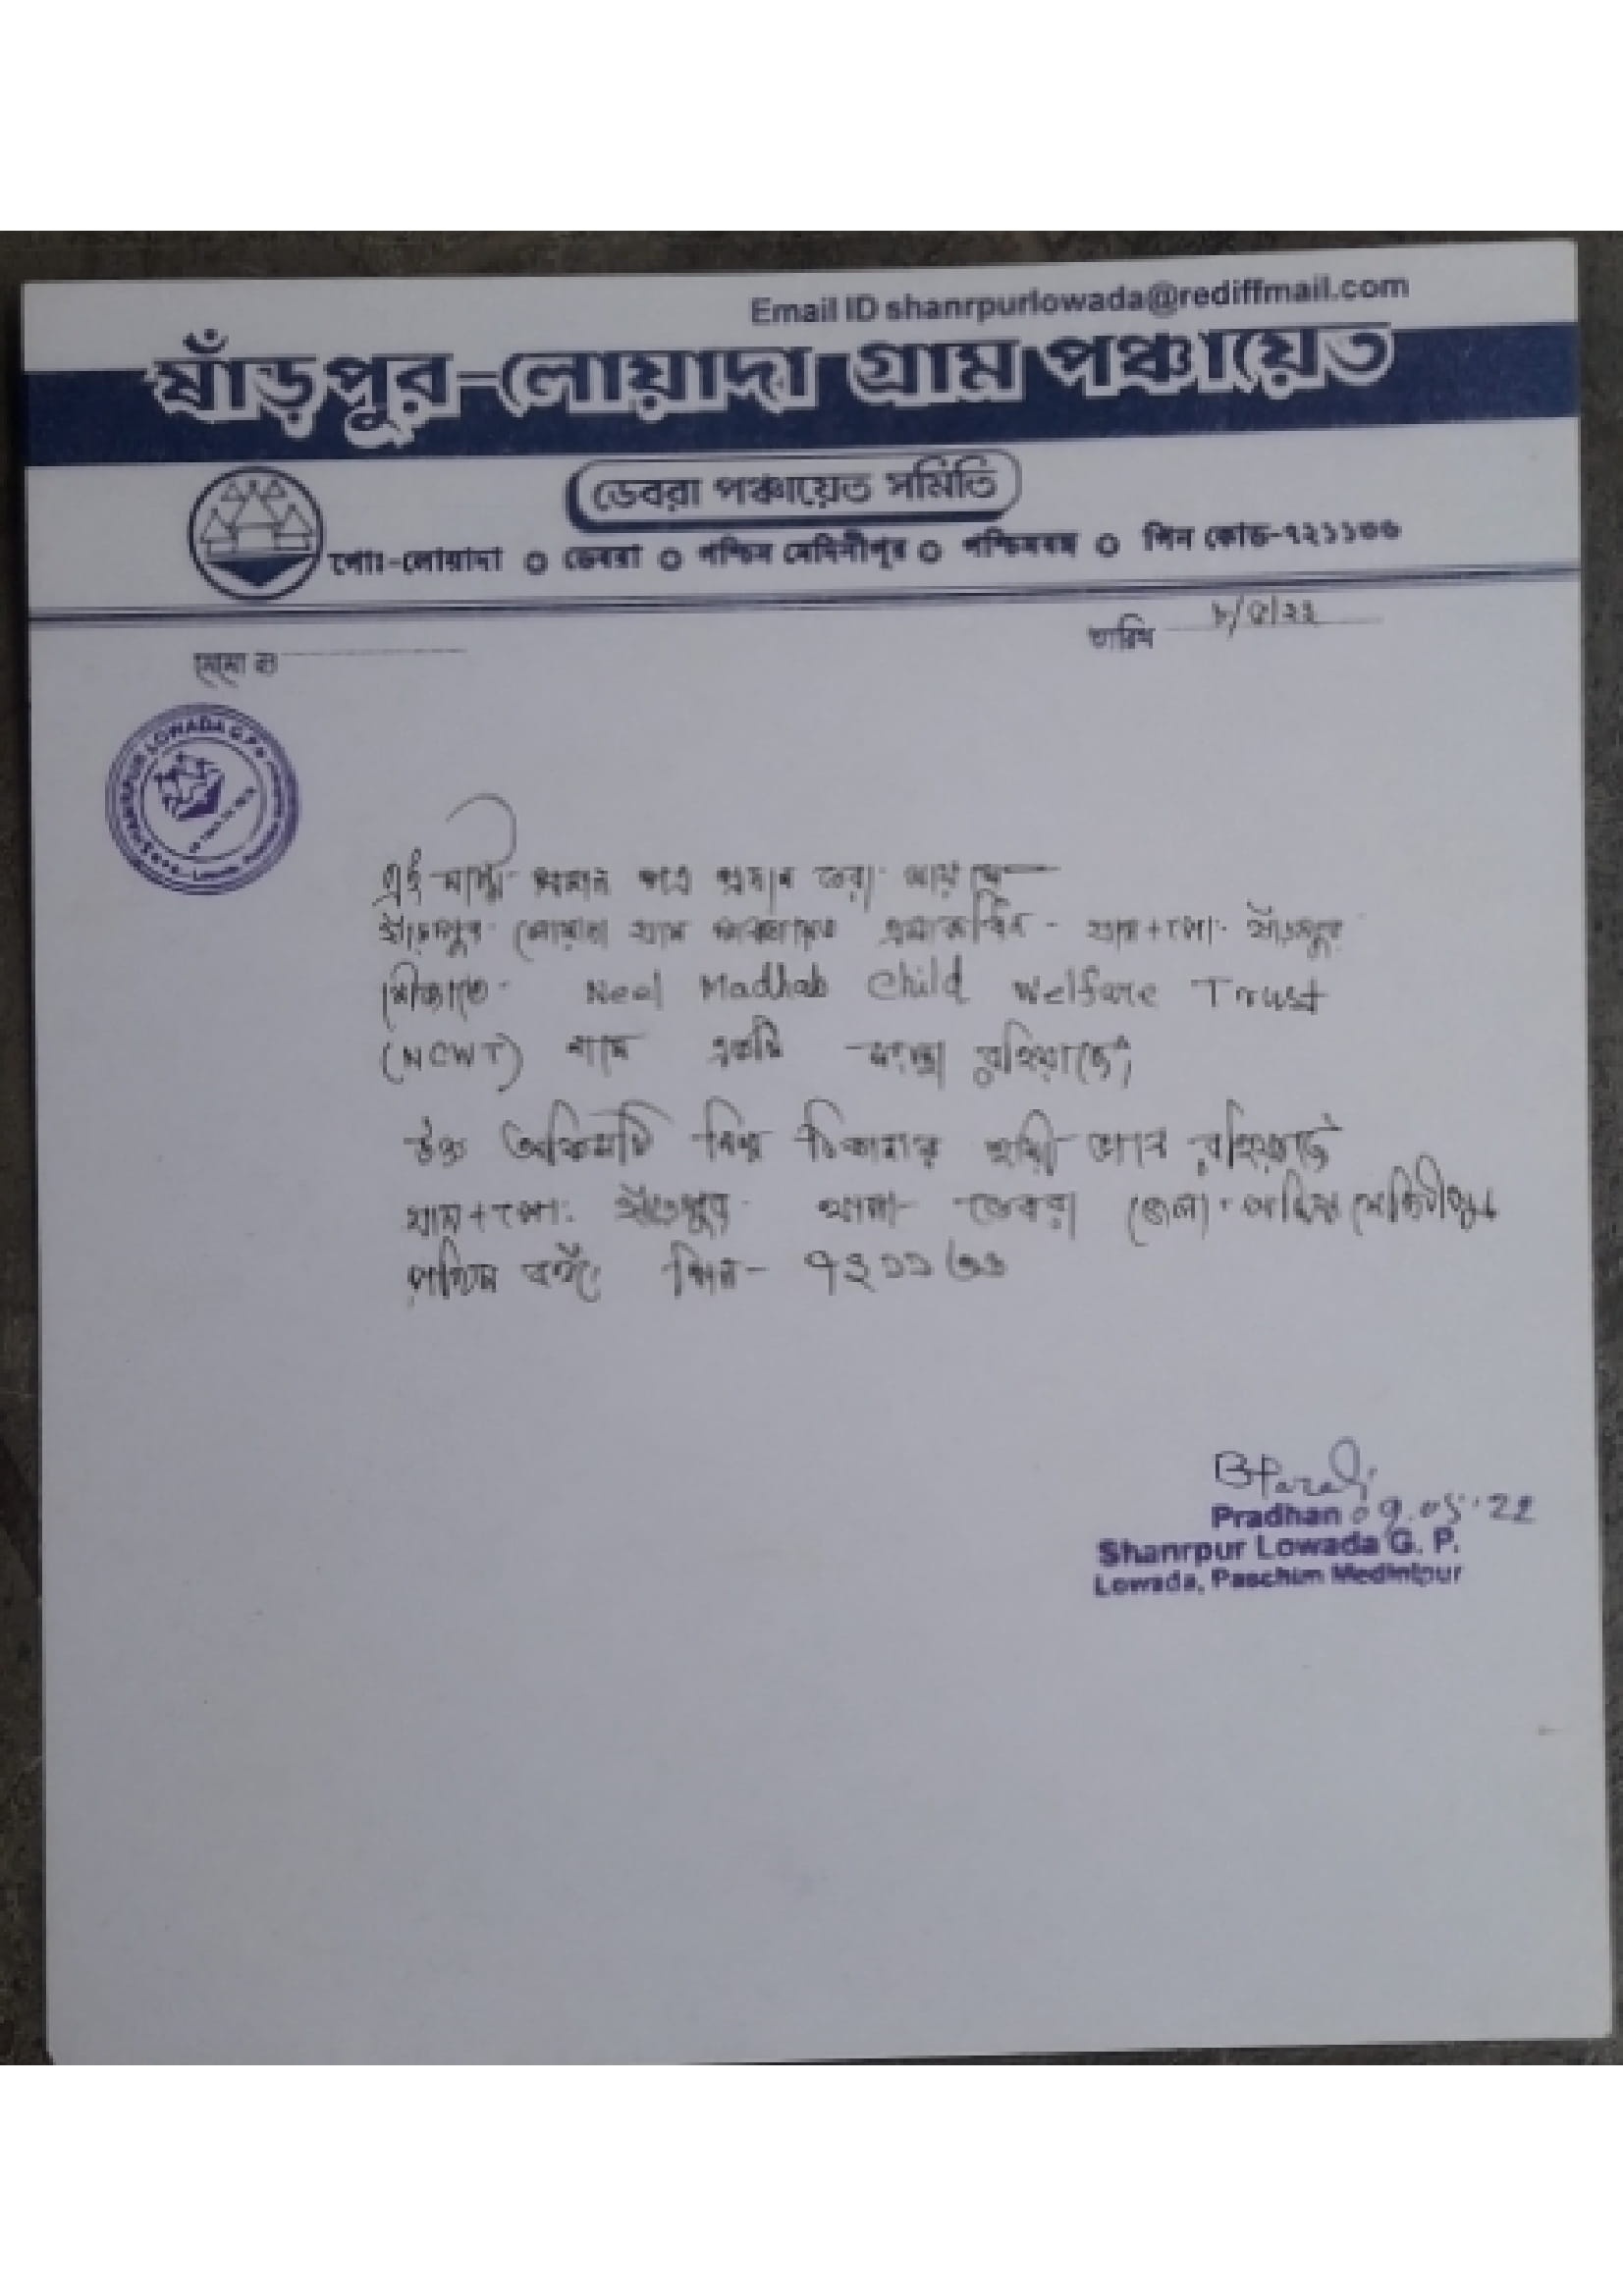 Email ID shanrpurlowada@rediffmail.com
ষাঁড়পুর-লোয়াদা গ্রাম পঞ্চায়েত
ডেবরা পঞ্চায়েত সমিতি
পোঃ-লোয়াদা ০ ডেবরা ০ পশ্চিম মেদিনীপুর ০ পশ্চিমবঙ্গ ০ পিন কোড-৭২১১৩৬
তারিখ ৮/৫/২২
মেমো নং
SHANRPUR LOWADA G.P.
এই মর্মে প্রমান পত্র প্রদান করা যায় যে
ষাঁড়পুর লোয়াদা গ্রাম পঞ্চায়েত গ্রাম+পোঃ ষাঁড়পুর
মৌজাতে Neel Madhab Child Welfare Trust
(NCWT) নামে একটি সংস্থা রহিয়াছে,
উক্ত অফিসটি নিম্ন ঠিকানায় স্থায়ী ভাবে রহিয়াছে
গ্রাম+পোঃ ষাঁড়পুর থানা- ডেবরা জেলা- পশ্চিম মেদিনীপুর
পশ্চিম বঙ্গ পিন-
Pradhan 09.05.22
Shanrpur Lowada G. P.
Lowada, Paschim Medinipur